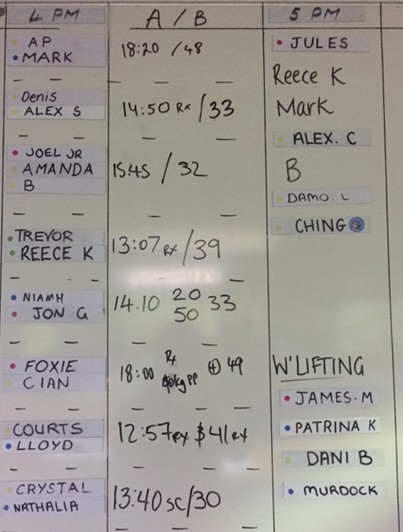 4 PM A / B 5 PM
AP
MARK
18:20 / 48
JULES
Reece K
Denis
ALEX S
14:50 Rx / 33
Mark
ALEX. C
JOEL JR
AMANDA
B
15:45 / 32
B
DAMO. L
CHING
TREVOR
REECE K
13:07 Rx / 39
NIAMH
JON G
14.10 20 33
50
FOXIE
CIAN
Rx
18:00 kg PP + 49
W'LIFTING
JAMES. M
COURTS
LLOYD
12:57 rx $41 rx
PATRINA K
DANI B
CRYSTAL
NATHALIA
13:40 SC / 30
MURDOCK